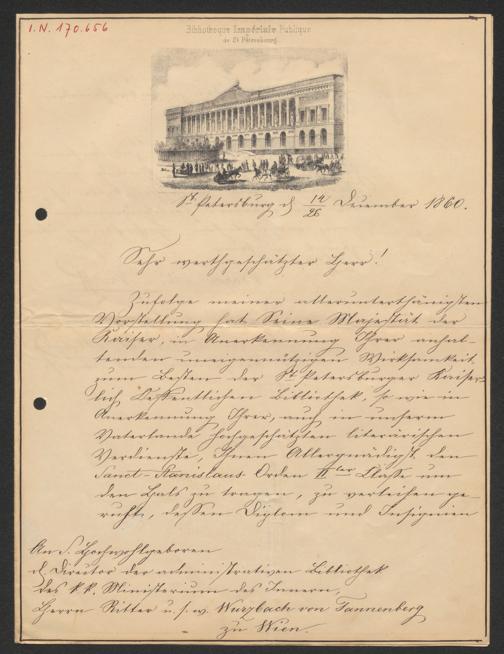 I.N. 170.656
Bibliothèque Impériale Publique
de St Pétersbourg.
St Petersburg d 14/26 December 1860.
Sehr werthgeschätzter Herr!
Zufolge meiner allerunterthänigsten
Vorstellung hat Seine Majestät der
Kaiser, in Anerkennung Ihrer anhal-
tenden uneigennützigen Wirksamkeit
zum Besten der St Petersburger Kaiser-
lich Oeffentlichen Bibliothek, so wie in
Anerkennung Ihrer, auch in unserm
Vaterlande hochgeschätzten literärischen
Verdienste, Ihnen Allergnädigst den
Sanct-Stanislaus Orden IIter Classe um
den Hals zu tragen, zu verleihen ge-
ruht, dessen Diplom und Insignien
An S. Hochwohlgeboren
d Director der administrativen Bibliothek
des k.k. Ministerium des Innern,
Herrn Ritter u.s.w. Wurzbach von Tannenberg
zu Wien.